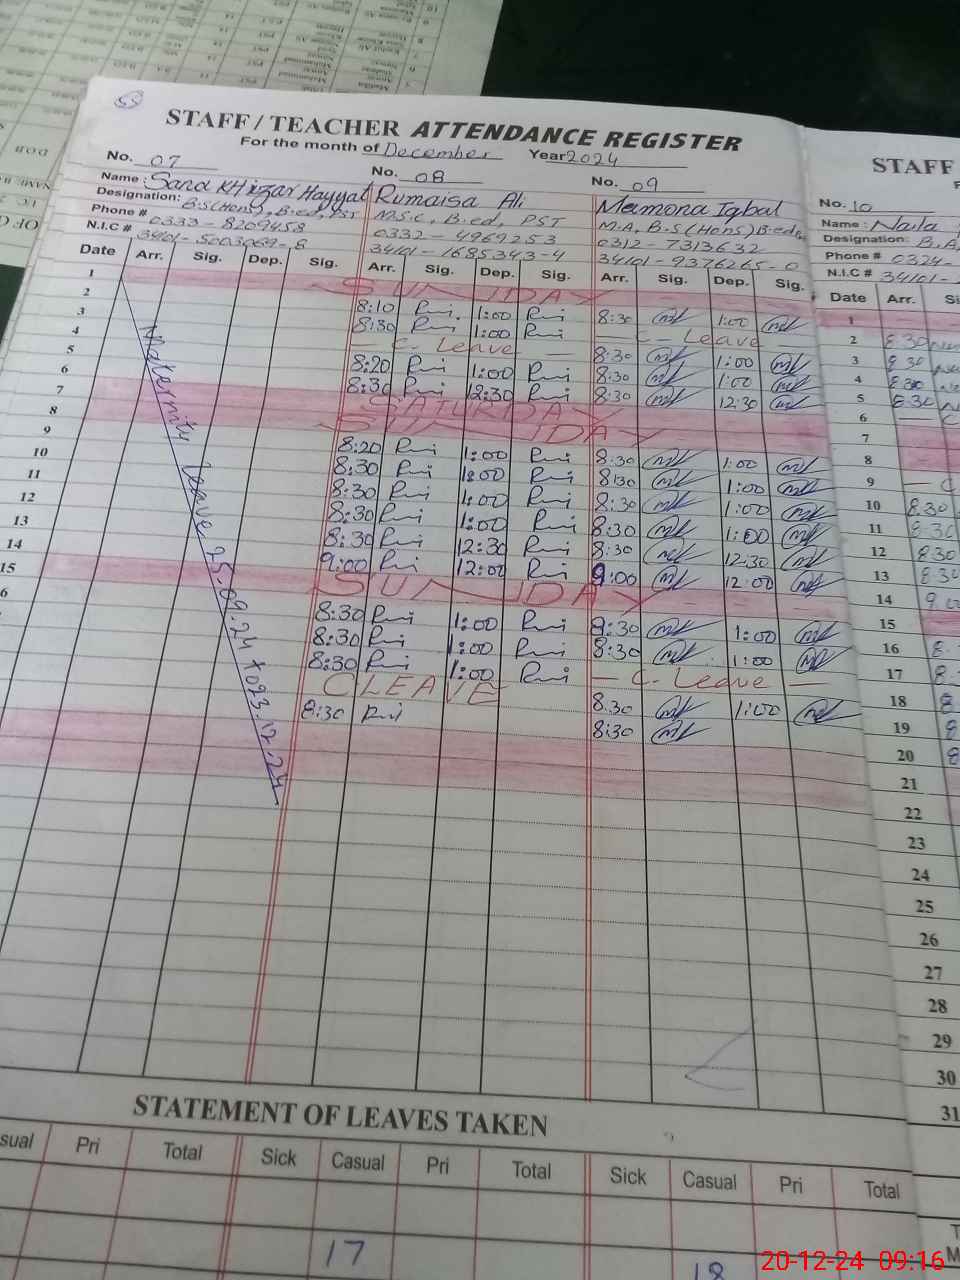 STAFF / TEACHER ATTENDANCE REGISTER
For the month of December Year 2024
No. 07 No. 08 No. 09
Name: Sana KHizar Hayyat Rumaisa Ali Mamona Iqbal
Designation: B.S(Hons), B.ed, PST M.S.c, B.ed, PST M.A, B.S (Hons) B.ed
Phone # 0333-8209458 0332-4969253 0312-7313632
N.I.C # 34101-5003069-8 34101-1685343-4 34101-9376265-0
Date Arr. Sig. Dep. Sig. Arr. Sig. Dep. Sig. Arr. Sig. Dep. Sig.
1 SUNDAY
2 8:10 Rmi 1:00 Rmi 8:30 1:00
3 8:30 Rmi 1:00 Rmi — C- Leave —
4 — C. Leave — 8:30 1:00
5 8:20 Rmi 1:00 Rmi 8:30 1:00
6 8:30 Rmi 12:30 Rmi 8:30 12:30
7 SATURDAY
8 SUNDAY
9 8:20 Rmi 1:00 Rmi 8:30 1:00
10 8:30 Rmi 1:00 Rmi 8:30 1:00
11 8:30 Rmi 1:00 Rmi 8:30 1:00
12 8:30 Rmi 1:00 Rmi 8:30 1:00
13 8:30 Rmi 12:30 Rmi 8:30 12:30
14 9:00 Rmi 12:00 Rmi 9:00 12:00
15 SUNDAY
8:30 Rmi 1:00 Rmi 8:30 1:00
8:30 Rmi 1:00 Rmi 8:30 1:00
8:30 Rmi 1:00 Rmi — C. Leave —
C LEAVE 8.30 1:00
8:30 Rmi 8:30
Maternity leave 25.09.24 to 23.12.24
STATEMENT OF LEAVES TAKEN
Pri Total Sick Casual Pri Total Sick Casual Pri Total
17 18
STAFF
No. 10
Name: Naila
Designation: B.A
Phone # 0324-
N.I.C # 34101-
Date Arr.
1
2 8.30
3 8.30
4 8.30
5 8.30
6
7
8
9 — C
10 8.30
11 8.30
12 8.30
13 8.30
14 9.00
15
16 8.
17 8.
18 8
19 8
20 8
21
22
23
24
25
26
27
28
29
30
31
20-12-24 09:16